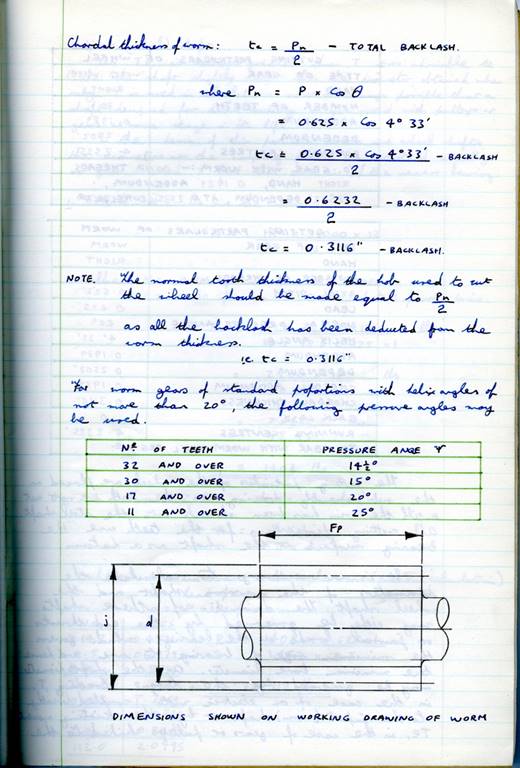 Chordal thickness of worm: tc = Pn/2 - TOTAL BACKLASH.
where Pn = P x Cos θ
= 0.625 x Cos 4° 33'
tc = 0.625 x Cos 4°33'/2 - BACKLASH
= 0.6232/2 - BACKLASH
tc = 0.3116" - BACKLASH.
NOTE. The normal tooth thickness of the hob used to cut
the wheel should be made equal to Pn/2
as all the backlash has been deducted from the
worm thickness.
i.e tc = 0.3116"
For worm gears of standard proportions with helix angles of
not more than 20°, the following pressure angles may
be used.
Nº OF TEETH PRESSURE ANGE Ψ
32 AND OVER 14½°
30 AND OVER 15°
17 AND OVER 20°
11 AND OVER 25°
Fp
j
d
DIMENSIONS SHOWN ON WORKING DRAWING OF WORM